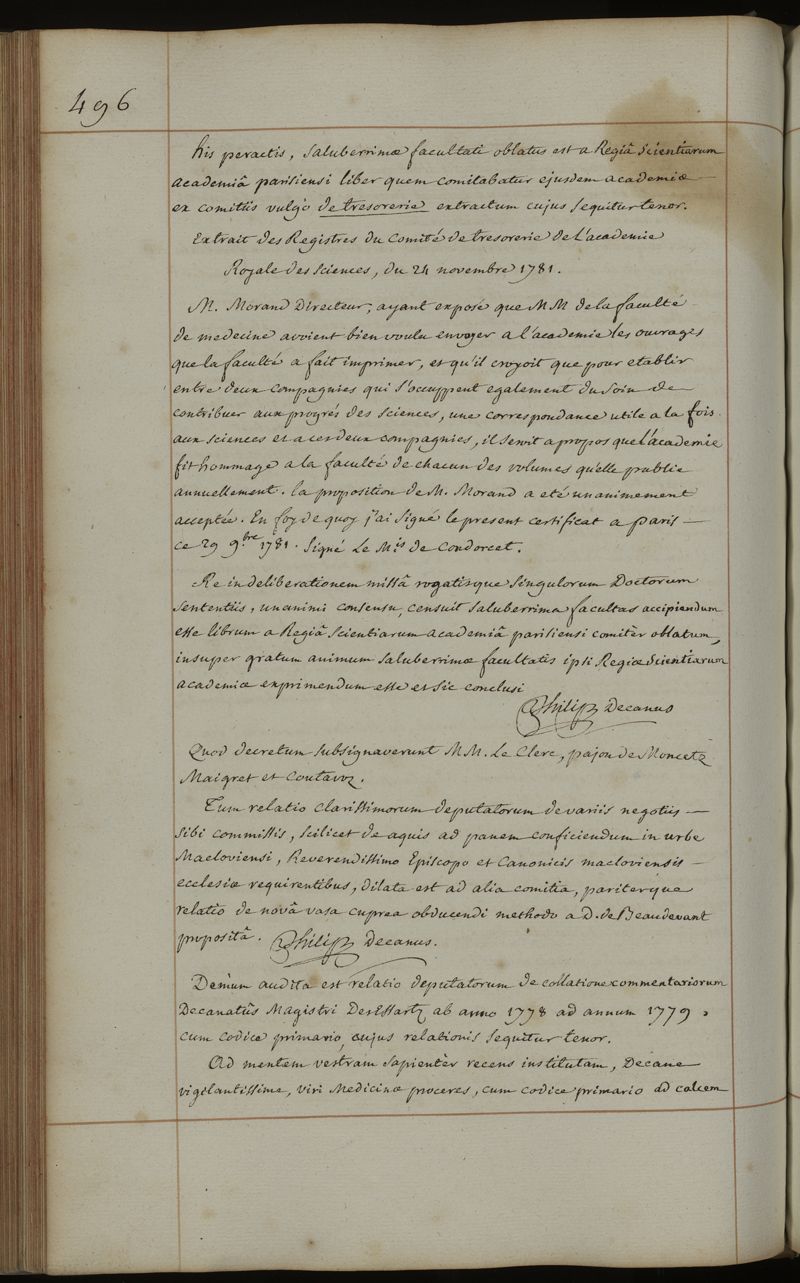 496
his peractis, saluberrimæ facultati oblatus est a Regiâ scientiarum
academiâ parisiensi liber quem comitabatur ejusdem academiæ
ex comitiis vulgò de tresorerie extractum cujus sequitur tenor.
Extrait des Registres du Comité de tresorerie de L'academie
Royale des Sciences, du 24 novembre 1781.
M. Morand Directeur, ayant exposé que MM de la faculté
de medecine avoient bien voulu envoyer a l'academie les ouvrages
que la faculté a fait imprimer, et qu'il croyoit que pour etablir
entre deux compagnies qui s'occuppent egalement du soin de
contribuer aux progrés des sciences, une correspondance utile a la fois
aux sciences et a ces deux compagnies, il seroit a propos que l'academie
fit hommage a la faculté de chacun des volumes qu'elle publie
annuellement. la proposition de M. Morand a eté unanimement
acceptée. En foy de quoy j'ai signé le present certificat a paris
ce 29 9.bre 1781. Signé Le M.is de Condorcet.
Re in deliberationem missâ rogatisque singulorum Doctorum
sententiis, unanimi consensu, censuit saluberrima facultas accipiendum
esse librum a Regiâ Scientiarum academiâ parisiensi comitèr oblatum,
insuper gratum animum saluberrimæ facultatis ipsi Regiæ Scientiarum
academiæ exprimendum esse et sic conclusi
Philip Decanus
Quod decretum subsignaverunt MM. Le Clerc, pajon de Moncetz
Maigret et Coutavoz.
Tum relatio clarissimorum deputatorum de variis negotiis
sibi commissis, scilicet de aquis ad panem conficiendum in urbe
Macloviensi, Reverendissimo Episcopo et Canonicis macloviensis
ecclesiæ requirentibus, dilata est ad alia comitia, pariterque
relatio de novâ vasa cuprea obducendi methodo a D. de Beaudevant
propositâ. Philip Decanus.
Demùm audita est relatio deputatorum de collatione commentariorum
Decanatûs Magistri DesEssartz ab anno 1778 ad annum 1779,
cum codice primario, cujus relationis sequitur tenor.
Ad mentem vestram sapientèr recens institutam, Decane
vigilantissime, viri Medicinæ proceres, cum codice primario ad calcem